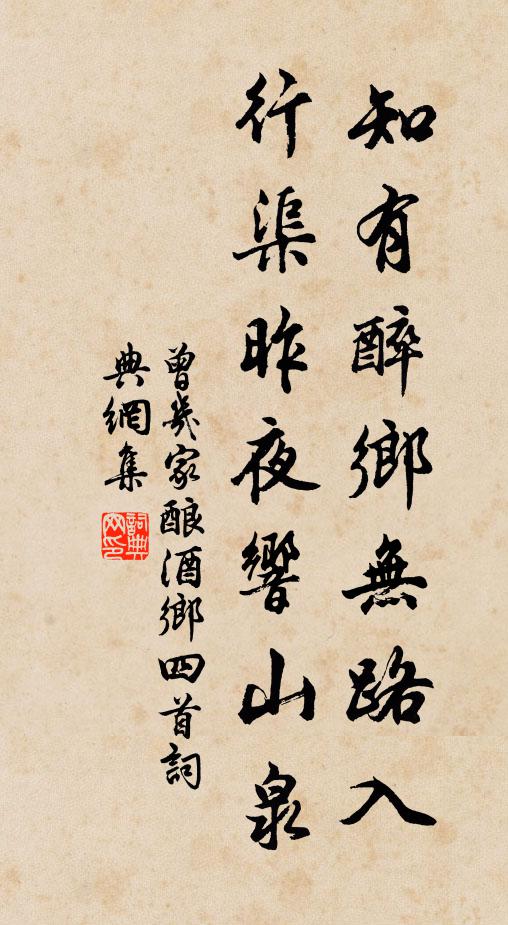 知有醉鄉無路入
行渠昨夜響山泉
曾幾家酿酒鄉四首詞
典網集
詞典
网印